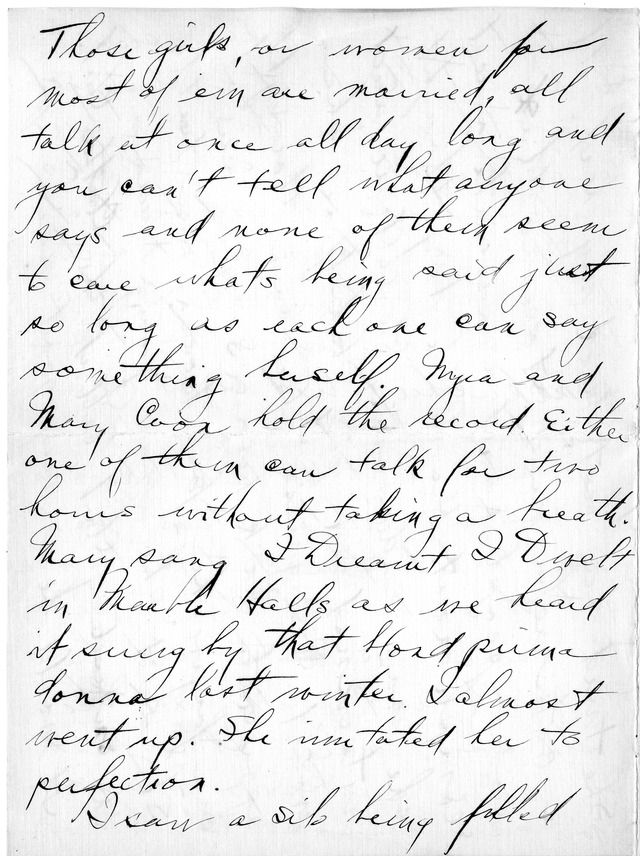 Those girls, or women for
most of em are married, all
talk at once all day long and
you can't tell what anyone
says and none of them seem
to care whats being said just
so long as each one can say
something herself. Myra and
Mary Coon hold the record. Either
one of them can talk for two
hours without taking a breath.
Mary sang I Dreamt I Dwelt
in Marble Halls as we heard
it sung by that blond prima
donna last winter. I almost
went up. She imitated her to
perfection.
I saw a silo being filled